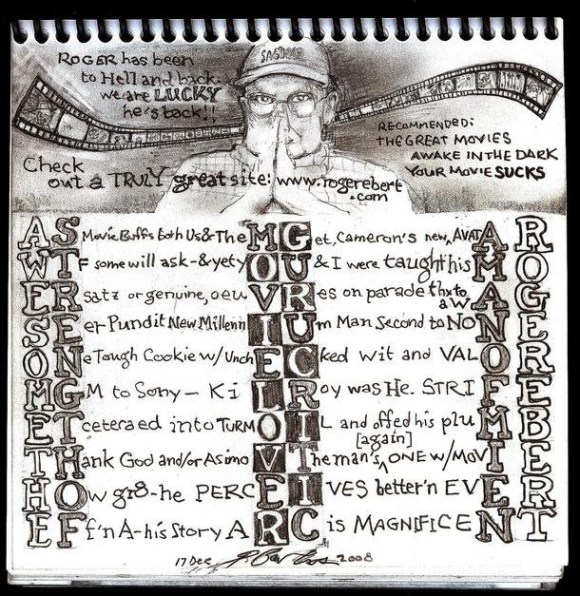 SAGINAW
ROGER has been
to Hell and back.
we are LUCKY
he's back!!
RECOMMENDED:
THE GREAT MOVIES
AWAKE IN THE DARK
YOUR MOVIE SUCKS
Check
out a TRULY great site: www.rogerebert
.com
AS Movie Buffs Both Us & The MGet, Cameron's new, AVATAR
WTF some will ask - & yet yOU & I were taught his MO
ERsatz or genuine, oeuVRes on parade thx to a WAG
SEer Pundit New MillennIUm Man Second to NONE
ONe Tough Cookie w/ UnchECked wit and VALOR
MGM to Sony - KiLRoy was He. STRIFE
ETceteraed into TURMOIL and offed his pluMB
[again]
THank God and/or AsimoV The man's, ONE w/ MOVIE
HOw gr8-he PERCEIVES better'n EVER
EFf'n A-his Story ARC is MAGNIFICENT
17 Dec 2008